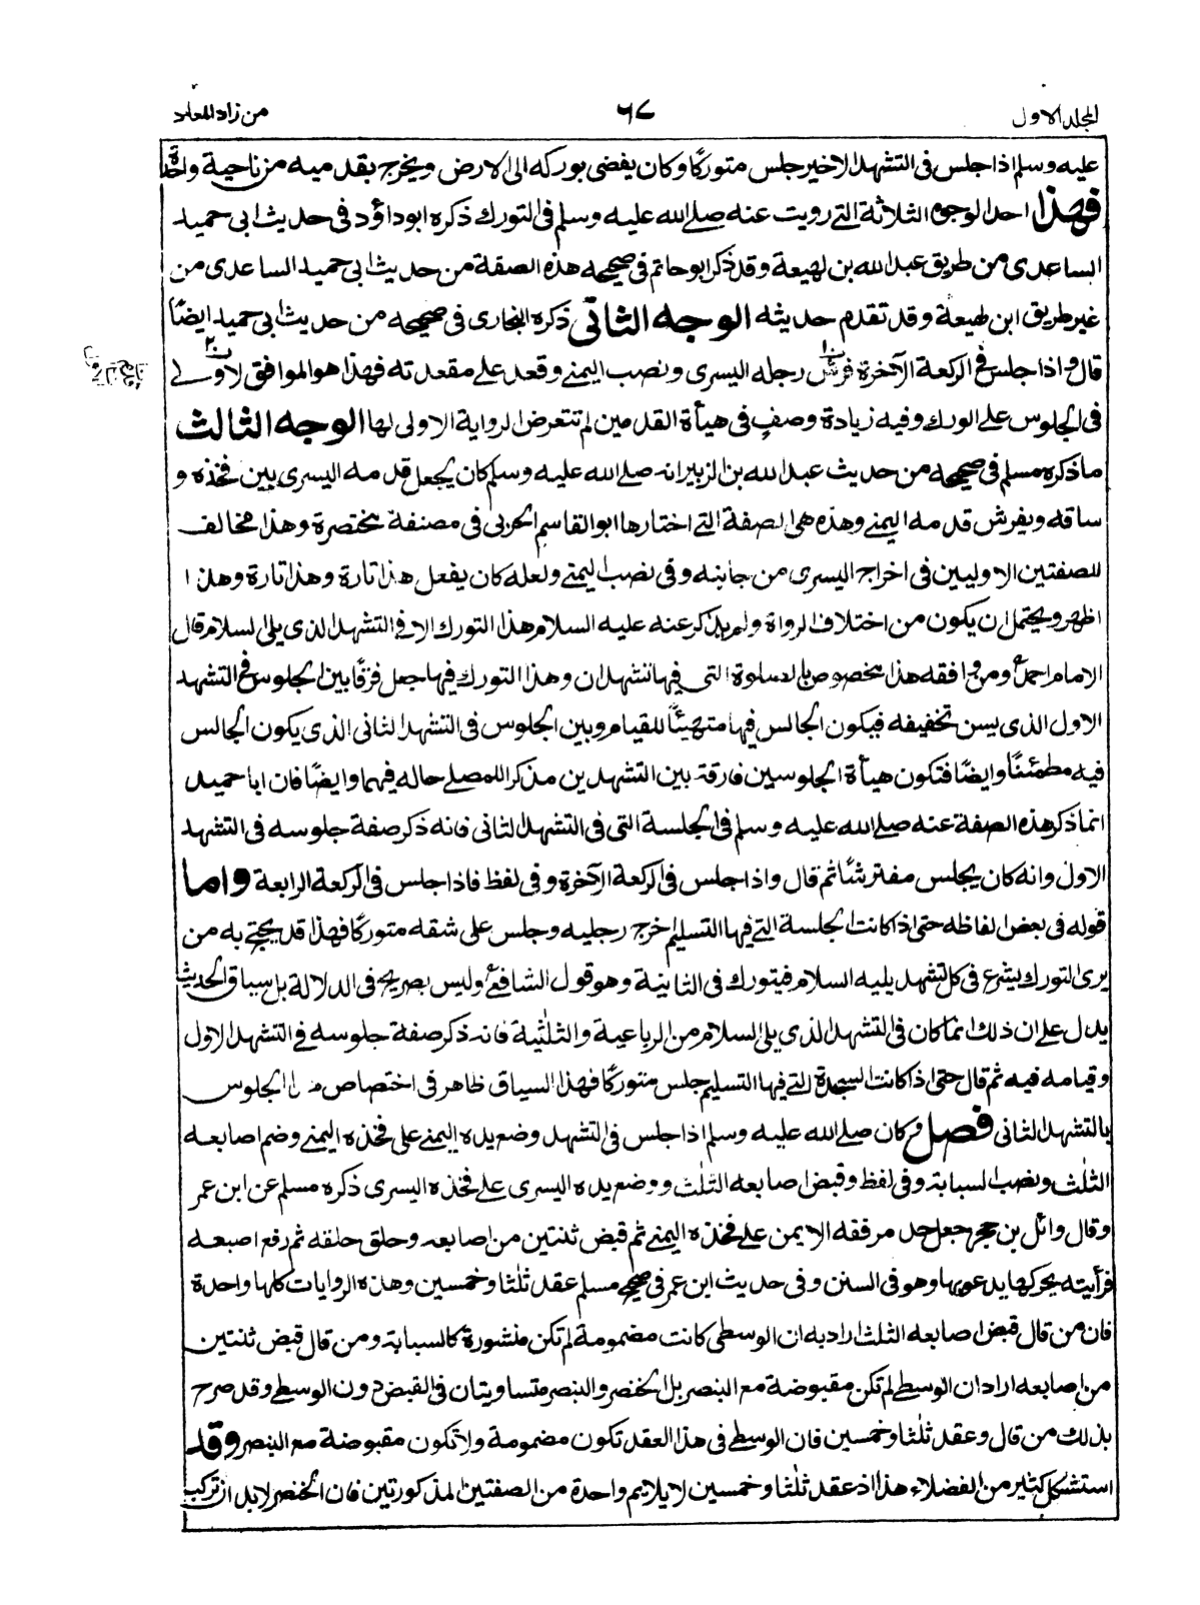 المجلد الاول
٦٧
من زاد المعاد
عليه وسلم اذا جلس فى التشهد الاخير جلس متوركًا وكان يفضى بوركه الى الارض ويخرج بقدميه من ناحية واحدة
فهذا احد الوجوه الثلاثة التے رويت عنه صلے الله عليه وسلم فى التورك ذكره ابو داؤد فى حديث ابى حميد
الساعدى من طريق عبد الله بن لهيعة وقد ذكر ابو حاتم فى صحيحه هذه الصفة من حديث ابى حميد الساعدى من
غير طريق ابن لهيعة وقد تقدم حديثه الوجه الثانى ذكره البخارى فى صحيحه من حديث ابى حميد ايضًا
قال واذا جلس فے الركعة الآخرة فرش رجله اليسرى ونصب اليمنے وقعد على مقعدته فهذا هو الموافق لاولے
فى الجلوس على الورك وفيه زيادة وصفٍ فى هيأة القدمين لم تتعرض الرواية الاولى لها الوجه الثالث
ما ذكره مسلم فى صحيحه من حديث عبد الله بن الزبير انه صلے الله عليه وسلم كان يجعل قدمه اليسرى بين فخذه و
ساقه ويفرش قدمه اليمنے وهذه هى الصفة التے اختارها ابو القاسم الخرقى فى مصنفه مختصرة وهذا مخالف
للصفتين الاوليين فى اخراج اليسرى من جانبه وفى نصب اليمنے ولعله كان يفعل هذا تارة وهذا تارة وهذا
اظهر ويحتمل ان يكون من اختلاف الرواة ولم يذكر عنه عليه السلام هذا التورك الا فے التشهد الذى يلى السلام قال
الامام احمد ومن وافقه هذا مخصوص بالصلوة التى فيها تشهدان وهذا التورك فيها جعل فرقًا بين الجلوس فے التشهد
الاول الذى يسن تخفيفه فيكون الجالس فيها متهيئًا للقيام وبين الجلوس فى التشهد الثانى الذى يكون الجالس
فيه مطمئنًا وايضًا فتكون هيأة الجلوسين فارقة بين التشهدين مذكرا للمصلے حاله فيهما وايضًا فان ابا حميد
انما ذكر هذه الصفة عنه صلے الله عليه وسلم فى الجلسة التى فى التشهد الثانى فانه ذكر صفة جلوسه فى التشهد
الاول وانه كان يجلس مفترشًا ثم قال واذا جلس فى الركعة الآخرة وفى لفظ فاذا جلس فى الركعة الرابعة واما
قوله فى بعض الفاظه حتى اذا كانت الجلسة التے فيها التسليم اخرج رجليه وجلس على شقه متوركًا فهذا قد يحتج به من
يرى التورك يشرع فى كل تشهد يليه السلام فيتورك فى الثانية وهو قول الشافعے وليس بصريح فى الدلالة بل سياق الحديث
يدل على ان ذلك انما كان فى التشهد الذى يلى السلام من الرباعية والثلٰثية فانه ذكر صفة جلوسه فے التشهد الاول
وقيامه فيه ثم قال حتى اذا كانت السجدة التے فيها التسليم جلس متوركًا فهذا السياق ظاهر فى اختصاص هذا الجلوس
بالتشهد الثانى فصل وكان صلے الله عليه وسلم اذا جلس فى التشهد وضع يده اليمنے على فخذه اليمنے وضم اصابعه
الثلٰث ونصب السبابة وفى لفظ وقبض اصابعه الثلٰث ووضع يده اليسرى علے فخذه اليسرى ذكره مسلم عن ابن عمر
وقال وائل بن حجر جعل حد مرفقه الايمن علے فخذه اليمنے ثم قبض ثنتين من اصابعه وحلق حلقه ثم رفع اصبعه
فرأيته يحركها يدعوبها وهو فى السنن وفى حديث ابن عمر فى صحيح مسلم عقد ثلٰثا وخمسين وهذه الروايات كلها واحدة
فان من قال قبض اصابعه الثلث اراد به ان الوسطى كانت مضمومة لم تكن منشورة كالسبابة ومن قال قبض ثنتين
من اصابعه اراد ان الوسطے لم تكن مقبوضة مع البنصر بل الخنصر والبنصر متساويتان فى القبض دون الوسطے وقد صرح
بذلك من قال وعقد ثلٰثا وخمسين فان الوسطے فى هذا العقد تكون مضمومة ولا تكون مقبوضة مع البنصر وقد
استشكل كثير من الفضلاء هذا اذ عقد ثلٰثا وخمسين لا يلايم واحدة من الصفتين المذكورتين فان الخنصر لا بد ان تركب